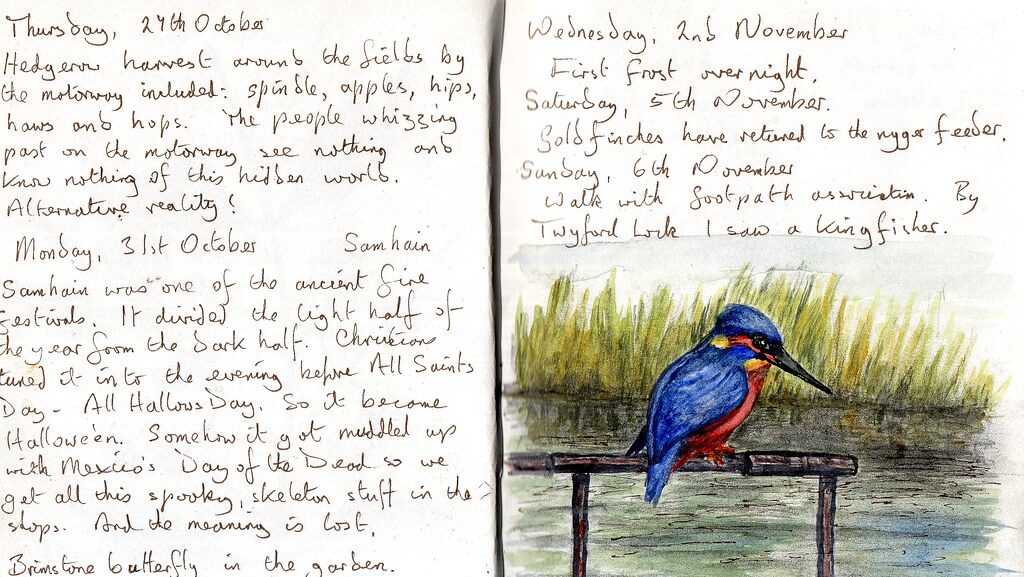 Thursday, 27th October
Hedgerow harvest around the fields by
the motorway included: spindle, apples, hips,
haws and hops. The people whizzing
past on the motorway see nothing and
know nothing of this hidden world.
Alternative reality!
Monday, 31st October Samhain
Samhain was one of the ancient fire
festivals. It divided the light half of
the year from the dark half. Christians
tuned it in to the evening before All Saints
Day - All Hallows Day. So it became
Hallowe'en. Somehow it got muddled up
with Mexico's Day of the Dead so we
get all this spooky, skeleton stuff in the
shops. And the meaning is lost.
Brimstone butterfly in the garden.
Wednesday, 2nd November
First frost overnight.
Saturday, 5th November.
Goldfinches have returned to the nyger feeder.
Sunday, 6th November
Walk with footpath association. By
Twyford Lock I saw a kingfisher.